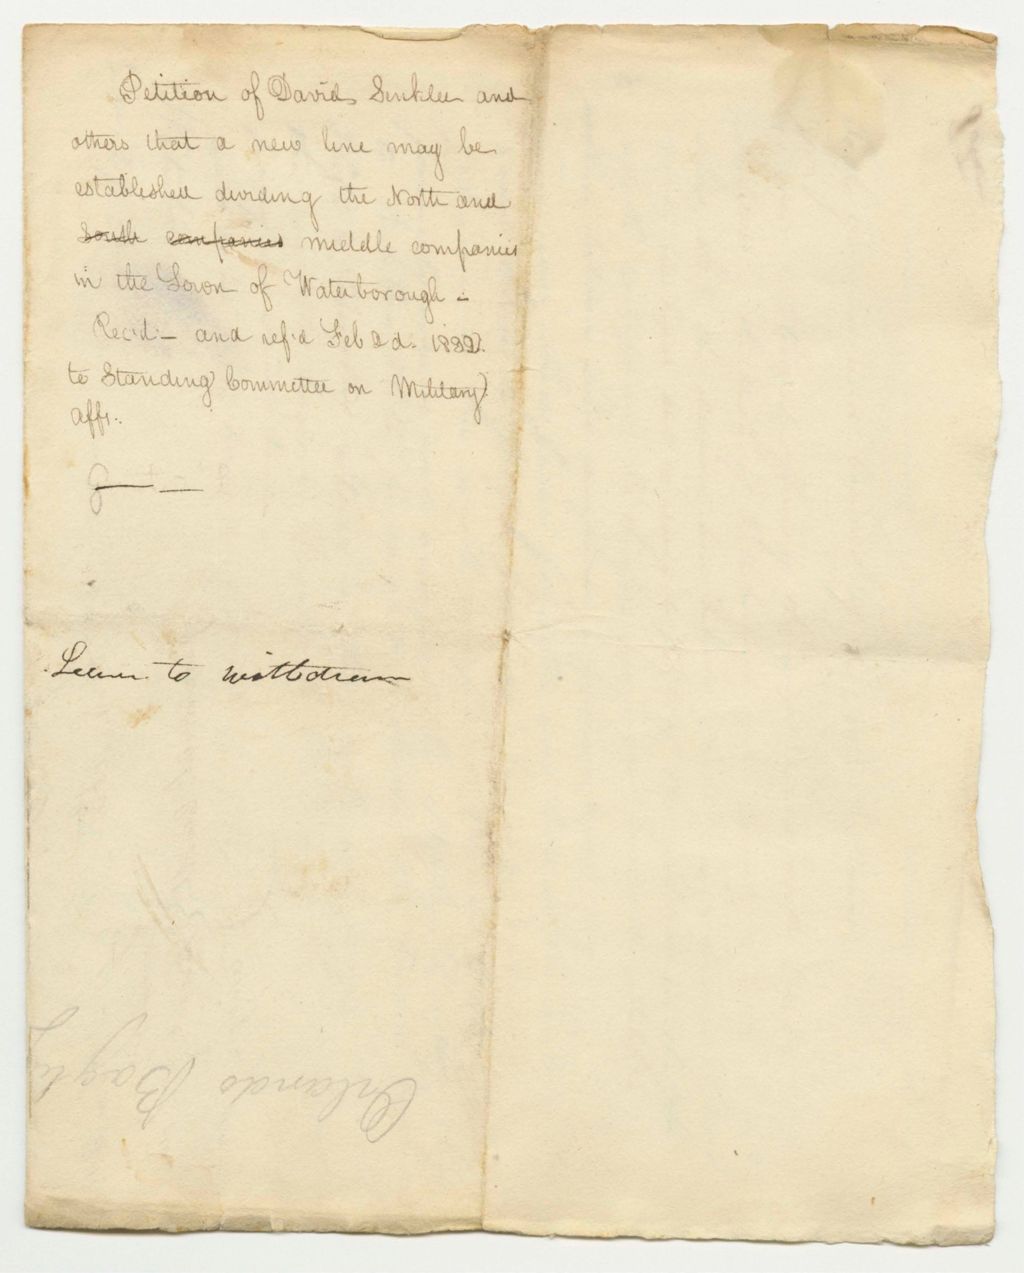 Petition of David Sinkler and
others that a new line may be
established dividing the North and
south companies middle companies
in the Town of Waterborough -
Rec'd - and ref'd Feb 2d. 1832.
to Standing Committee on Military
Affs.
Leave to withdraw
Orlando Bagly